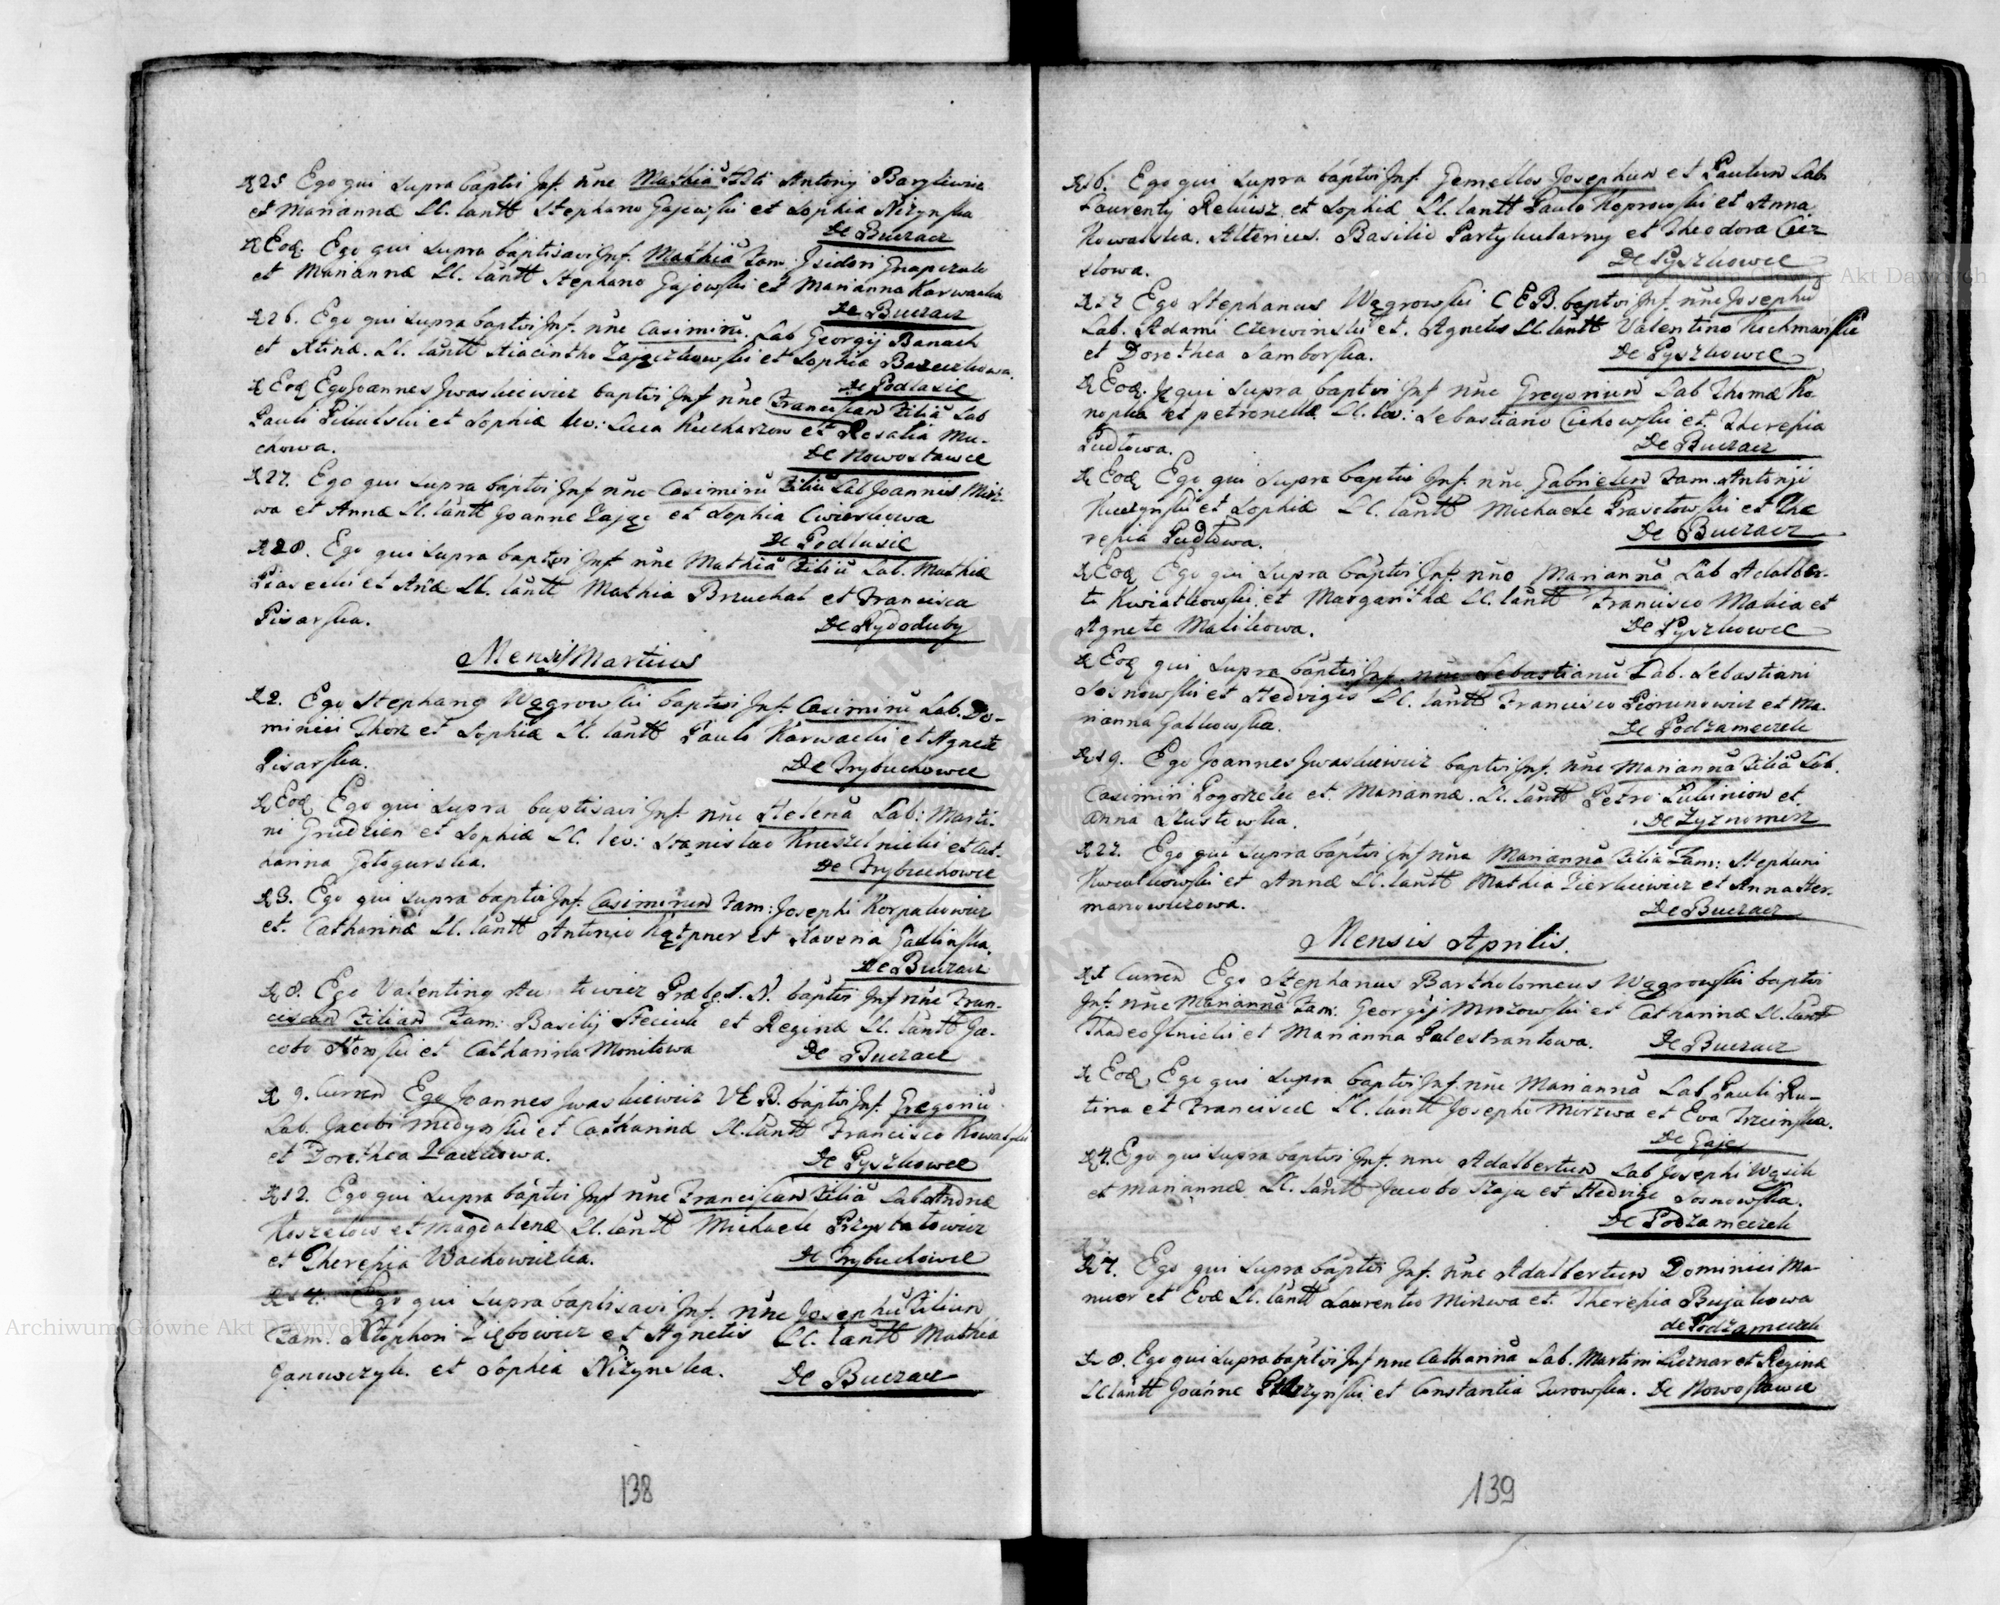 D 25 Ego qui supra baptvi Inf. nne Mathiã Antonij Baryliewicz
et Mariannæ LL. Cantt Stephano Gajewski et Sophia Niżynska
De Buczacz
D Eod. Ego qui supra baptisavi Inf. Mathiã Fam. Isidori
et Mariannæ LL. Cantt Stephano Gajowski et Marianna Karwacka
De Buczacz
D 26. Ego qui supra baptvi Inf. nne Casimirũ Lab Georgij Banach
et LL. Cantt Hiacintho Zajączkowski et Sophia
De Podlasie
D Eod Ego Joannes Jwaskiewicz baptvi Inf nne Franciscam Filiã Lab
Pauli Pikulski et Sophiæ Lev: Luca Kucharzow et Rosalia Mu-
chowa.
De Nowostawce
D 27. Ego qui supra baptvi Inf nne Casimirũ Filiũ Lab Joannis
wa et Annæ LL. Cantt Joanne Zając et Sophia Cwierkowa
De Podlasie
D 28. Ego qui supra baptvi Inf nne Mathiã Filiũ Lab. Mathiæ
Piasecki et Anæ LL. Cantt Mathia Bruchal et Francisca
Pisarska.
De Rydoduby
Mensis Martius
D 2. Ego Stephang Wągrowski baptvi Inf. Casimirũ Lab. Do-
minici Thorz et Sophiæ LL. Cantt Paulo Karwacki et Agnete
Pisarska.
De Trybuchowce
D Eod Ego qui supra baptisavi Inf nne Helenã Lab: Marti-
ni Grudzien et Sophiæ LL. Lev: Stanislao Kruszelnicki et Cat-
harina Gologurska.
De Trybuchowce
D 3. Ego qui supra baptvi Inf. Casimirum Fam: Josephi Korpakowicz
et Catharinæ LL. Cantt Antonio Kątpner et Xaveria Gadlinska
De Buczacz
D 8. Ego Valenting Præb. S. N. baptvi Inf nne Fran-
ciscam Filiam Fam: Basilij Steciuk et Reginæ LL. Cantt Ja-
cobo et Catharina Monitowa
De Buczacz
D 9. Curren Ego Joannes Jwaskiewicz V E B. baptvi Inf. Gregoriũ
Lab. Jacobi Medynski et Catharinæ LL. Cantt Francisco Kowalski
et Dorothea Zackowa.
De Pyszkowce
D 12. Ego qui supra baptvi Inf nne Franciscam Filiã Lab Andræ
Koszelow et Magdalenæ LL. Cantt Michaele Przystalowicz
et Theresia Wachowiczka.
De Trybuchowce
D 14. Ego qui supra baptisavi Inf. nne Josephũ Filium
Fam. Stephani Ziębowicz et Agnetis LL. Cantt Mathia
Ganowczyk et Sophia Niżynska.
De Buczacz
138
D 16. Ego qui supra baptvi Inf. Gemellos Josephum et Paulum Lab
Laurentij Rekiusz et Sophiæ LL. Cantt Paulo Koprowski et Anna
Kowalska. Alterius. Basilio Partykularny et Theodora Cier
slowa.
De Pyszkowce
D 17 Ego Stephanus Wągrowski C E B. baptvi Inf. nne Josephũ
Lab. Adami Czerwinski et Agnetis LL Cantt Valentino Kochmanski
et Dorothea Samborska.
De Pyszkowce
D Eod. qui supra baptvi Inf nne Gregorium Lab Thomæ Ko-
nopka et petronellæ LL. Lev: Sebastiano Cichowski et Theresia
Pudlowa.
De Buczacz
D Eod Ego qui supra baptvi Inf. nne Gabrielem Fam. Antonij
Kuczynski et Sophiæ LL. Cantt Michaele Prasolowski et The
resia Pudlowa.
De Buczacz
D Eod Ego qui supra baptvi Inf. nne Mariannã Lab Adalber-
ti Kwiatkowski et Margarithæ LL. Cantt Francisco Makia et
Agnete Malikowa.
De Pyszkowce
D Eod qui supra baptvi Inf. nne Sebastianũ Lab. Sebastiani
Sosnowski et Hedvigis LL. Cantt Francisco Piorunowicz et Ma-
rianna Galkowska.
De Podzameczek
D 19. Ego Joannes Jwaskiewicz baptvi Inf. nne Mariannã Filiã Lab.
Casimiri Pogorzelec et Mariannæ. LL. Cantt Petro Lubiniow et
Anna Szustowska.
De Żyznomierz
D 27. Ego qui supra baptvi Inf nne Mariannã Filiã Fam: Stephani
Kwialkowski et Annæ LL. Cantt Mathia Zierkiewicz et Anna Her-
manowiczowa.
De Buczacz
Mensis Aprilis.
D 1 Curren Ego Stephanus Bartholomeus Wągrowski baptvi
Inf. nne Mariannã Fam: Georgij Mrozowski et Catharinæ LL. Cantt
Thadeo Ilnicki et Marianna Palestrantowa.
De Buczacz
D Eod Ego qui supra baptvi Inf. nne Mariannã Lab Pauli Ru-
tina et Franciscæ LL. Cantt Josepho Mirzwa et Eva Trzcinska.
De Gaje
D 4. Ego qui supra baptvi Inf. nne Adalbertum Lab Josephi Wąsik
et Mariannæ LL. Cantt Jacobo Szaja et Hedvige Sosnowska.
De Podzameczek
D 7. Ego qui supra baptvi Inf. nne Adalbertum Dominici Ma-
nuor et Evæ LL. Cantt Laurentio Mirzwa et Theresia Bujakowa
de Podzameczek
D 8. Ego qui supra baptvi Inf nne Catharinã Lab. Martini Licznar et Reginæ
LL Cantt Joanne et Constantia Turowska. De Nowostawce
139
Archiwum Główne Akt Dawnych
Archiwum Główne Akt Dawnych